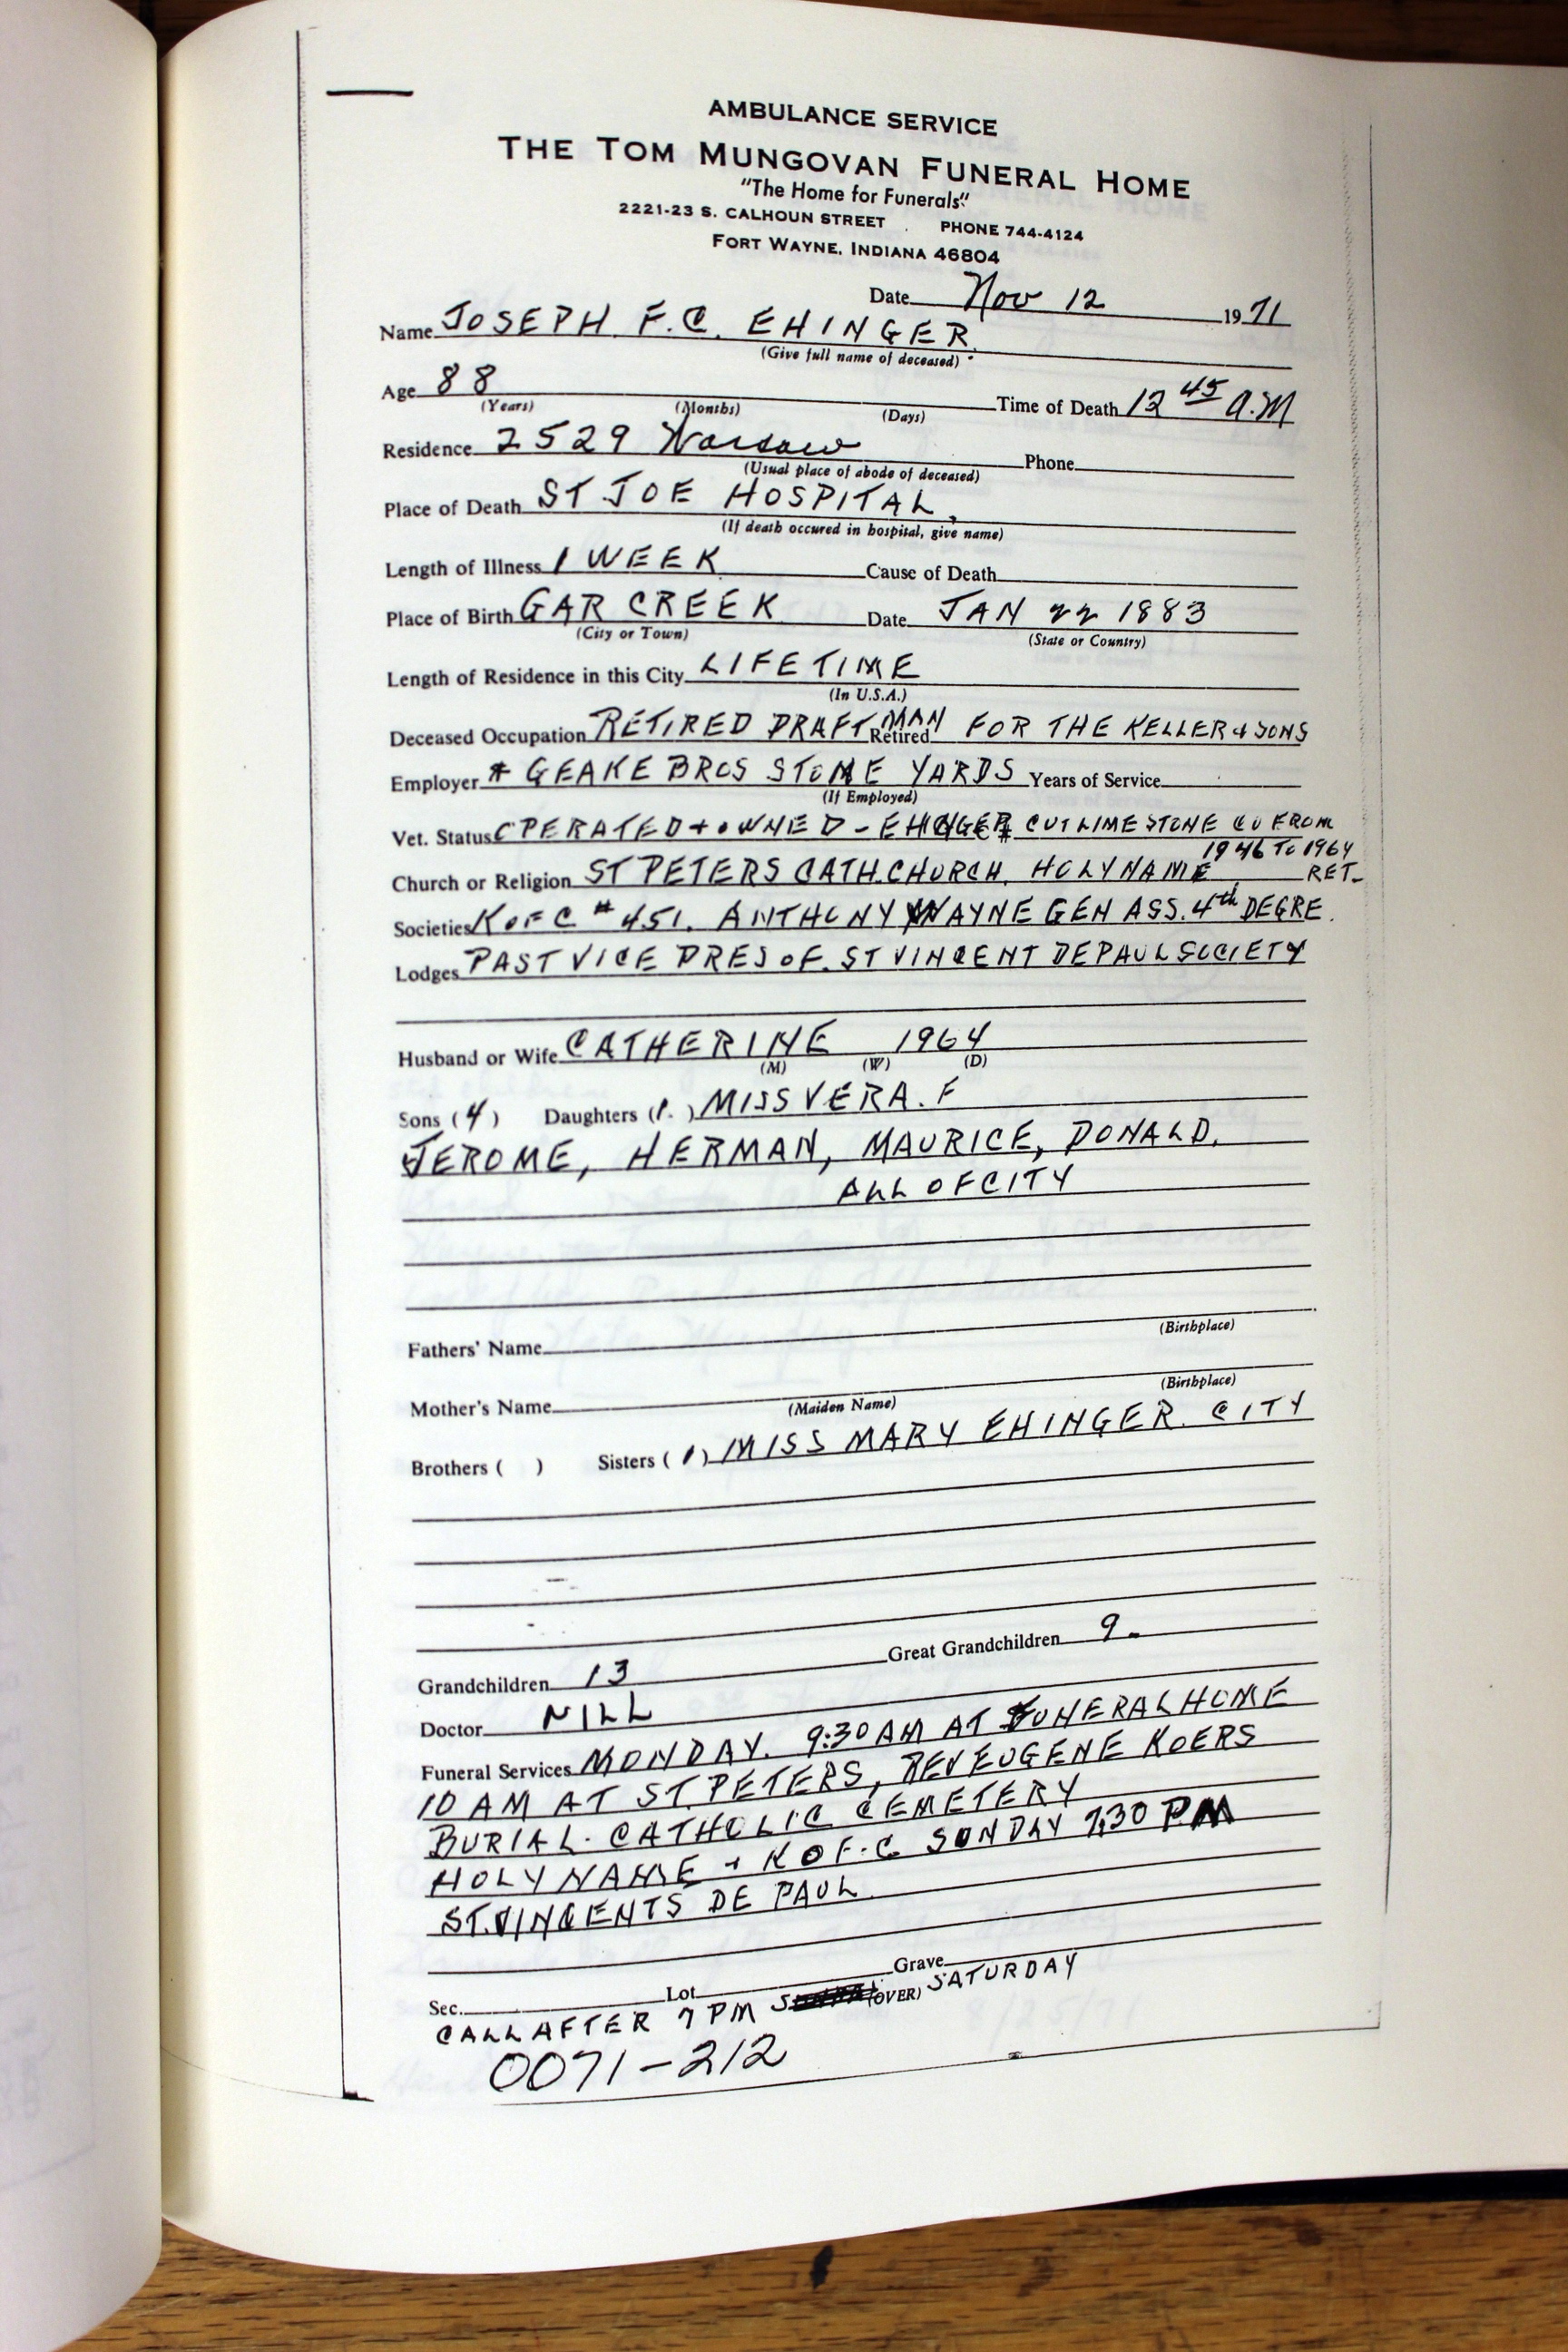 AMBULANCE SERVICE
THE TOM MUNGOVAN FUNERAL HOME
"The Home for Funerals"
2221-23 S. CALHOUN STREET PHONE 744-4124
FORT WAYNE, INDIANA 46804
Date Nov 12 1971
Name JOSEPH F.C. EHINGER.
(Give full name of deceased)
Age 88 Time of Death 12 45 A.M
(Years) (Months) (Days)
Residence 2529 Warsaw Phone
(Usual place of abode of deceased)
Place of Death ST JOE HOSPITAL,
(If death occured in hospital, give name)
Length of Illness 1 WEEK Cause of Death
Place of Birth GAR CREEK Date JAN 22 1883
(City or Town) (State or Country)
Length of Residence in this City LIFETIME
(In U.S.A.)
Deceased Occupation RETIRED DRAFTMAN Retired FOR THE KELLER & SONS
Employer * GEAKE BROS STONE YARDS Years of Service
(If Employed)
Vet. Status OPERATED + OWNED - EHINGER CUT LIMESTONE CO FROM
1946 TO 1964
Church or Religion ST PETERS CATH. CHURCH, HOLY NAME RET-
Societies K OF C #451. ANTHONY WAYNE GEN ASS. 4th DEGRE.
Lodges PAST VICE PRES OF. ST VINCENT DEPAUL SOCIETY
Husband or Wife CATHERINE 1964
(M) (W) (D)
Sons (4) Daughters (1.) MISS VERA. F
JEROME, HERMAN, MAURICE, DONALD,
ALL OF CITY
Fathers' Name
(Birthplace)
Mother's Name
(Maiden Name) (Birthplace)
Brothers ( ) Sisters (1) MISS MARY EHINGER. CITY
Grandchildren 13 Great Grandchildren 9-
Doctor NILL
Funeral Services MONDAY. 9:30 AM AT FUNERAL HOME
10 AM AT ST. PETERS, REV EUGENE KOERS
BURIAL. CATHOLIC CEMETERY
HOLY NAME + K OF. C SUNDAY 7.30 P.M
ST. VINCENTS DE PAUL
Sec. Lot Grave
CALL AFTER 7 PM (OVER) SATURDAY
0071-212